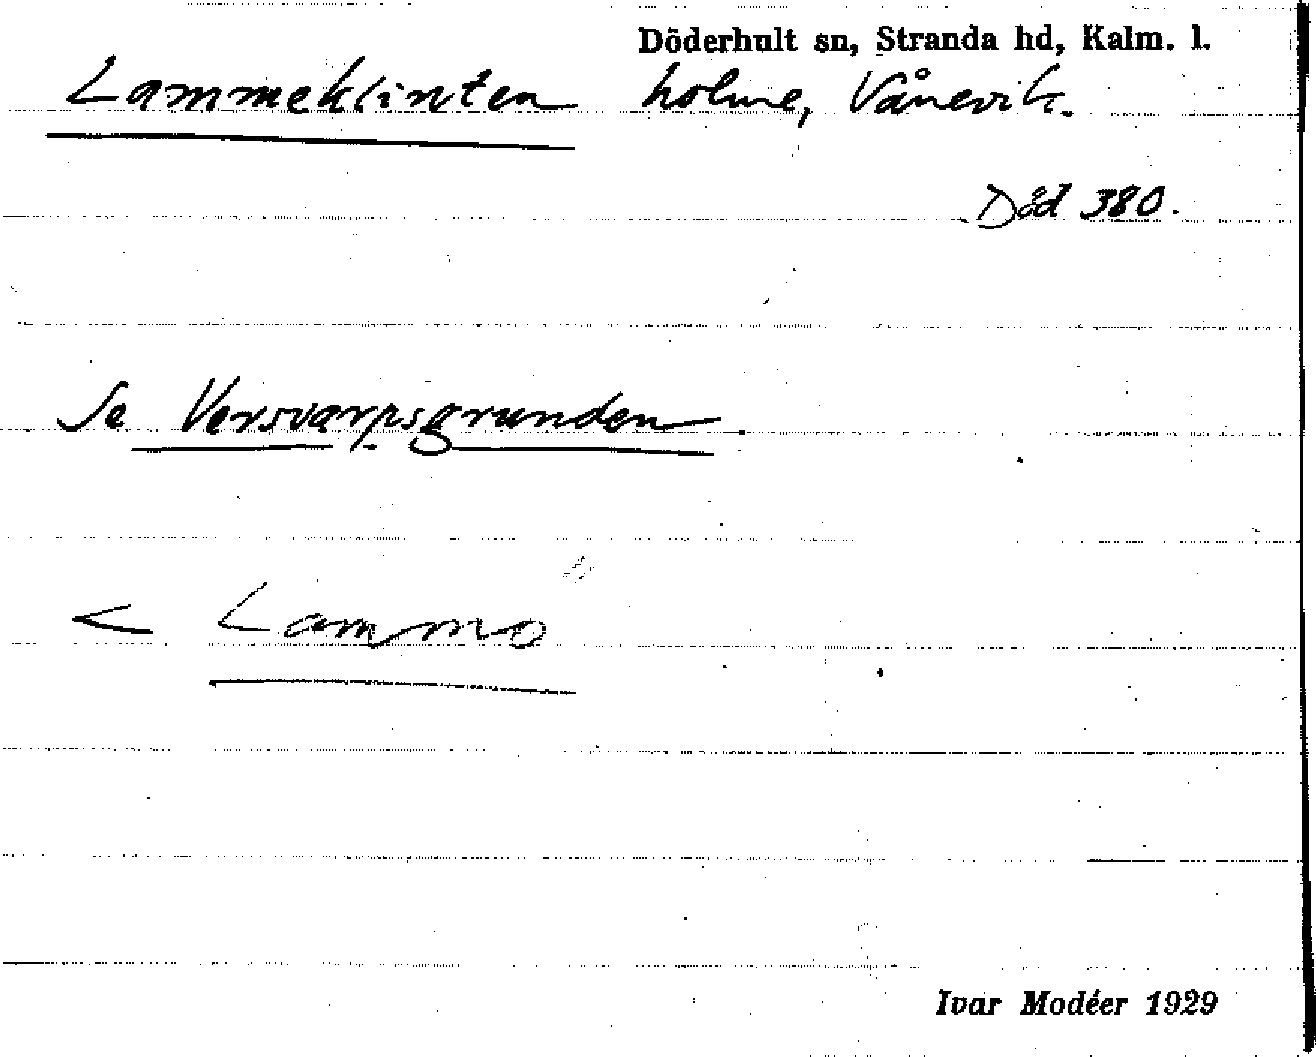 Döderhult sn, Stranda hd, Kalm. l.
Lammeklinten holme, Vånevik.
Död 380.
Se Versvarpsgrunden.
< Lammö
Ivar Modéer 1929